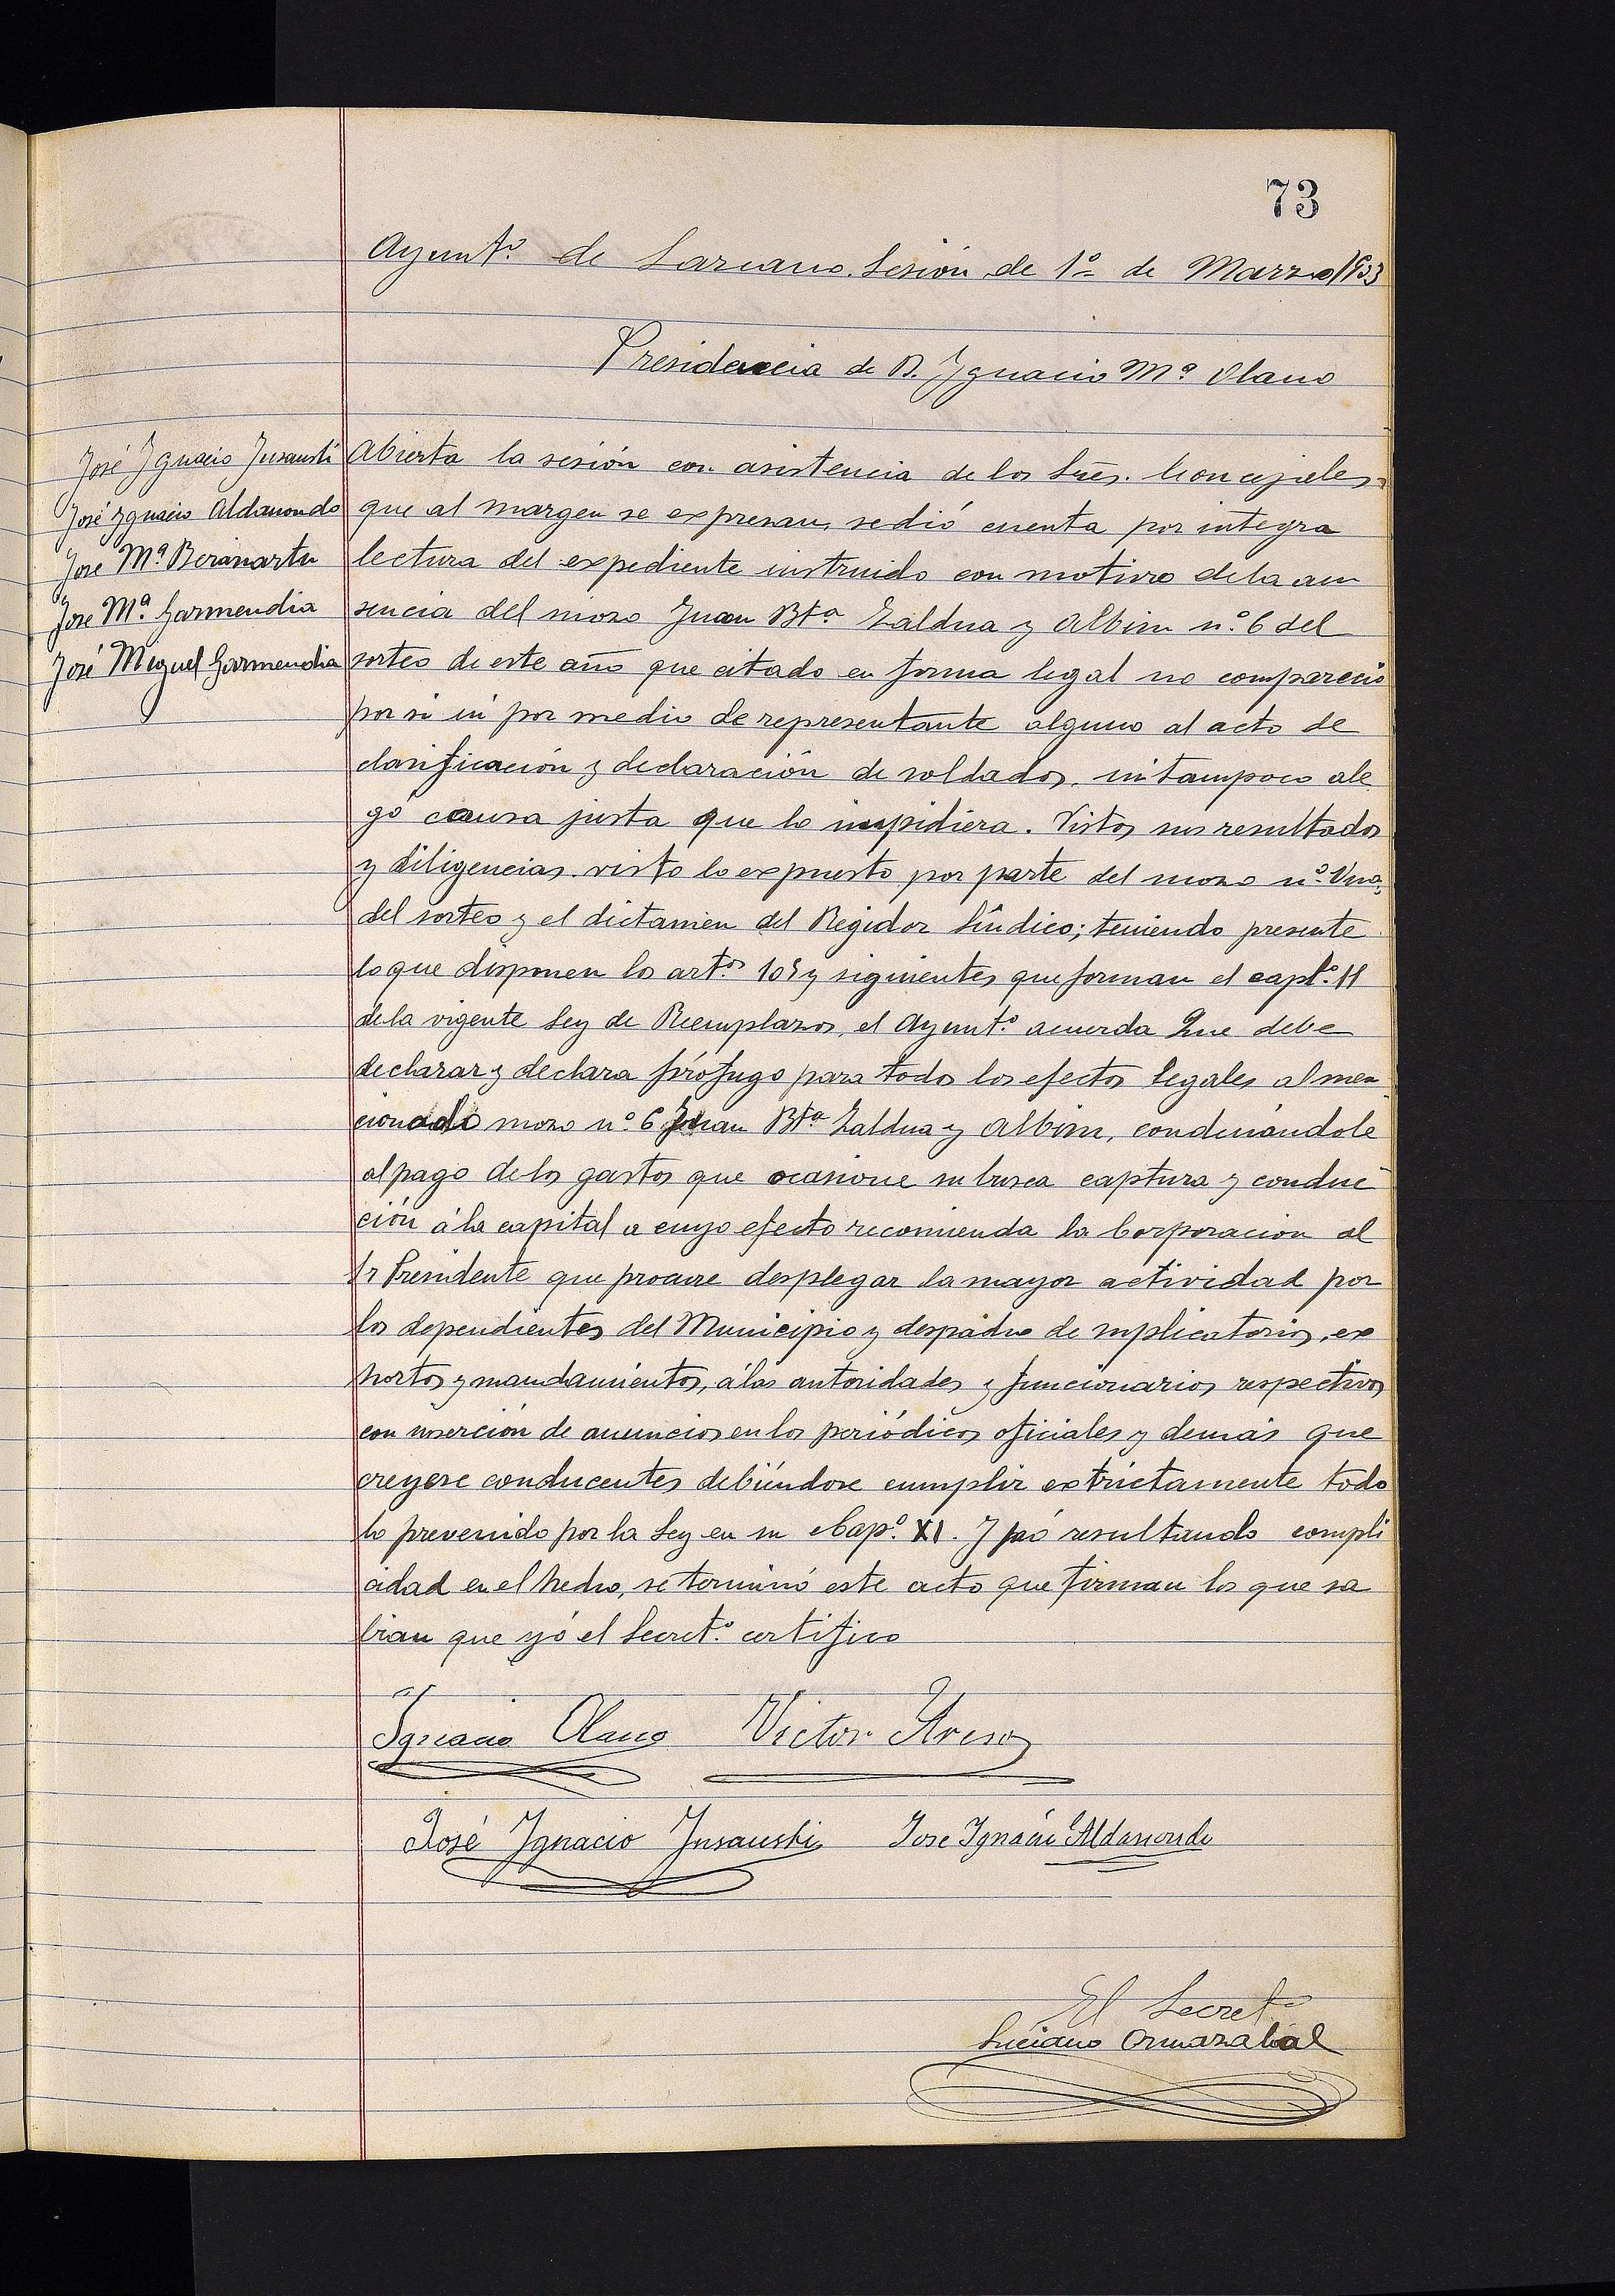 73
Ayunt.º de Lazcano. Sesión de 1º de Marzo 1903
Presidencia de D. Ygnacio Mª Olano
José Ygnacio Insausti
José Ygnacio Aldanondo
José Mª Beránartu
José Mª Garmendia
José Miguel Garmendia
Abierta la sesión con asistencia de los Sres. Concejales
que al margen se expresan, se dió cuenta por integra
lectura del expediente instruido con motivo de la au
sencia del mozo Juan Bta Zaldua y Albisu nº 6 del
sorteo de este año que citado en forma legal no compareció
por si ni por medio de representante alguno al acto de
clasificación y declaración de soldados, ni tampoco ale
gó causa justa que lo impidiera. Vistos sus resultados
y diligencias visto lo expuesto por parte del mozo nº Uno,
del sorteo y el dictamen del Regidor Síndico; teniendo presente
lo que disponen los art.os 105 y siguientes que forman el capt.º 11
de la vigente Ley de Reemplazos, el Ayunt.º acuerda Que debe
declarar y declara prófugo para todos los efectos legales al men
cionado mozo nº 6 Juan Bta Zaldua y Albisu, condenándole
al pago de los gastos que ocasione su busca captura y conduc
ción á la capital a cuyo efecto recomienda la Corporacion al
Sr Presidente que procure desplegar la mayor actividad por
los dependientes del Municipio y despacho de suplicatorios, ex
hortos y mandamientos, á las autoridades y funcionarios respectivos
con inserción de anuncios en los periódicos oficiales y demás que
creyere conducentes debiéndose cumplir extrictamente todo
lo prevenido por la Ley en su Cap.º XI. Y no resultando compli
cidad en el hecho, se terminó este acto que firman los que sa
bian que yó el Secret.º certifico
Ignacio Olano Victor Areso
José Ygnacio Insausti Jose Ignacio Aldanondo
El Secret.º
Luciano Ormazabal